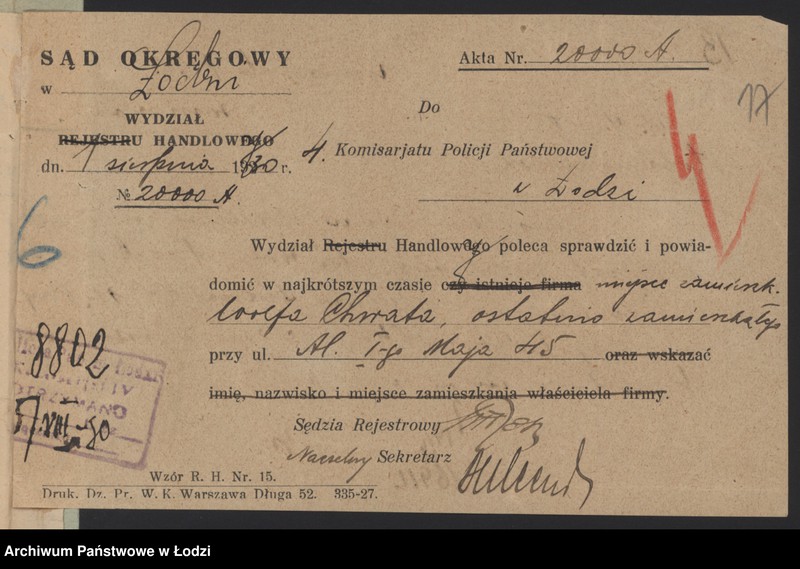 SĄD OKRĘGOWY
w Łodzi
WYDZIAŁ
REJESTRU HANDLOWEGO
dn. 1 sierpnia 1930 r.
№ 20000 A.
Akta Nr. 20000 A.
17
Do
4. Komisarjatu Policji Państwowej
w Łodzi
6
Wydział Rejestru Handlowego poleca sprawdzić i powia-
domić w najkrótszym czasie czy istnieje firma miejsce zamieszk.
Chwata, ostatnio zamieszkałego
przy ul. Al. I-go Maja 45 oraz wskazać
imię, nazwisko i miejsce zamieszkania właściciela firmy.
8802
VIII 30
Sędzia Rejestrowy
Naczelny Sekretarz
Wzór R. H. Nr. 15.
Druk. Dz. Pr. W. K. Warszawa Długa 52. 335-27.
Archiwum Państwowe w Łodzi